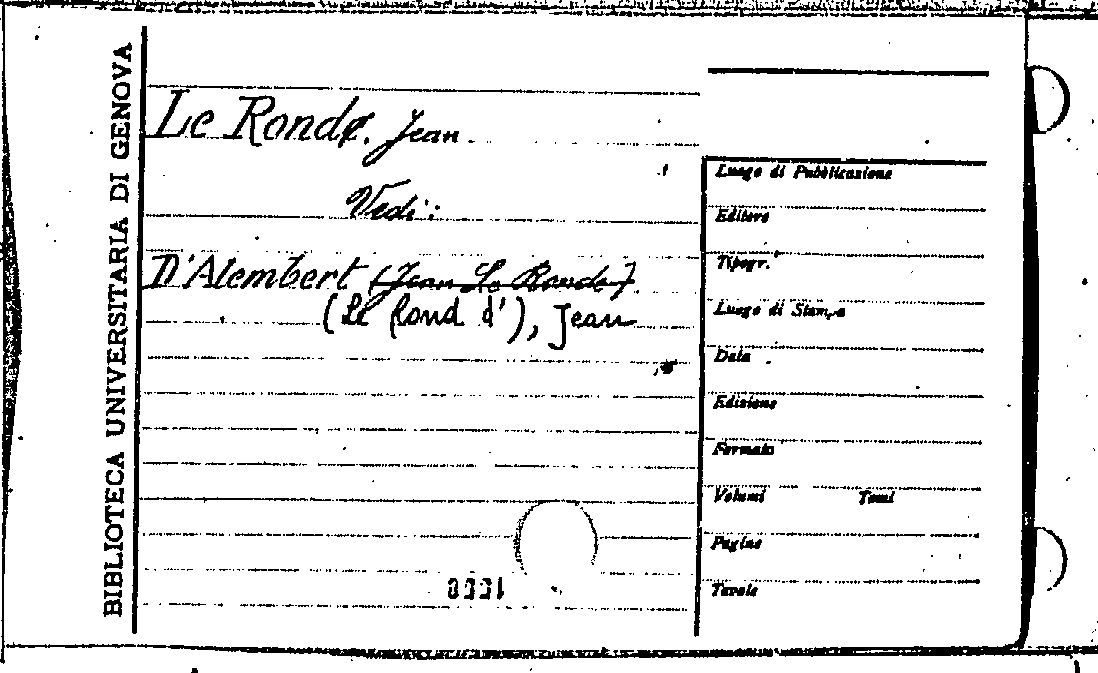 BIBLIOTECA UNIVERSITARIA DI GENOVA
Le Rond, Jean
Vedi:
D'Alembert (Jean Le Ronde)
(Le Rond d'), Jean
Luogo di Pubblicazione
Editore
Tipogr.
Luogo di Stampa
Data
Edizione
Formato
Volumi Tomi
Pagine
Tavole